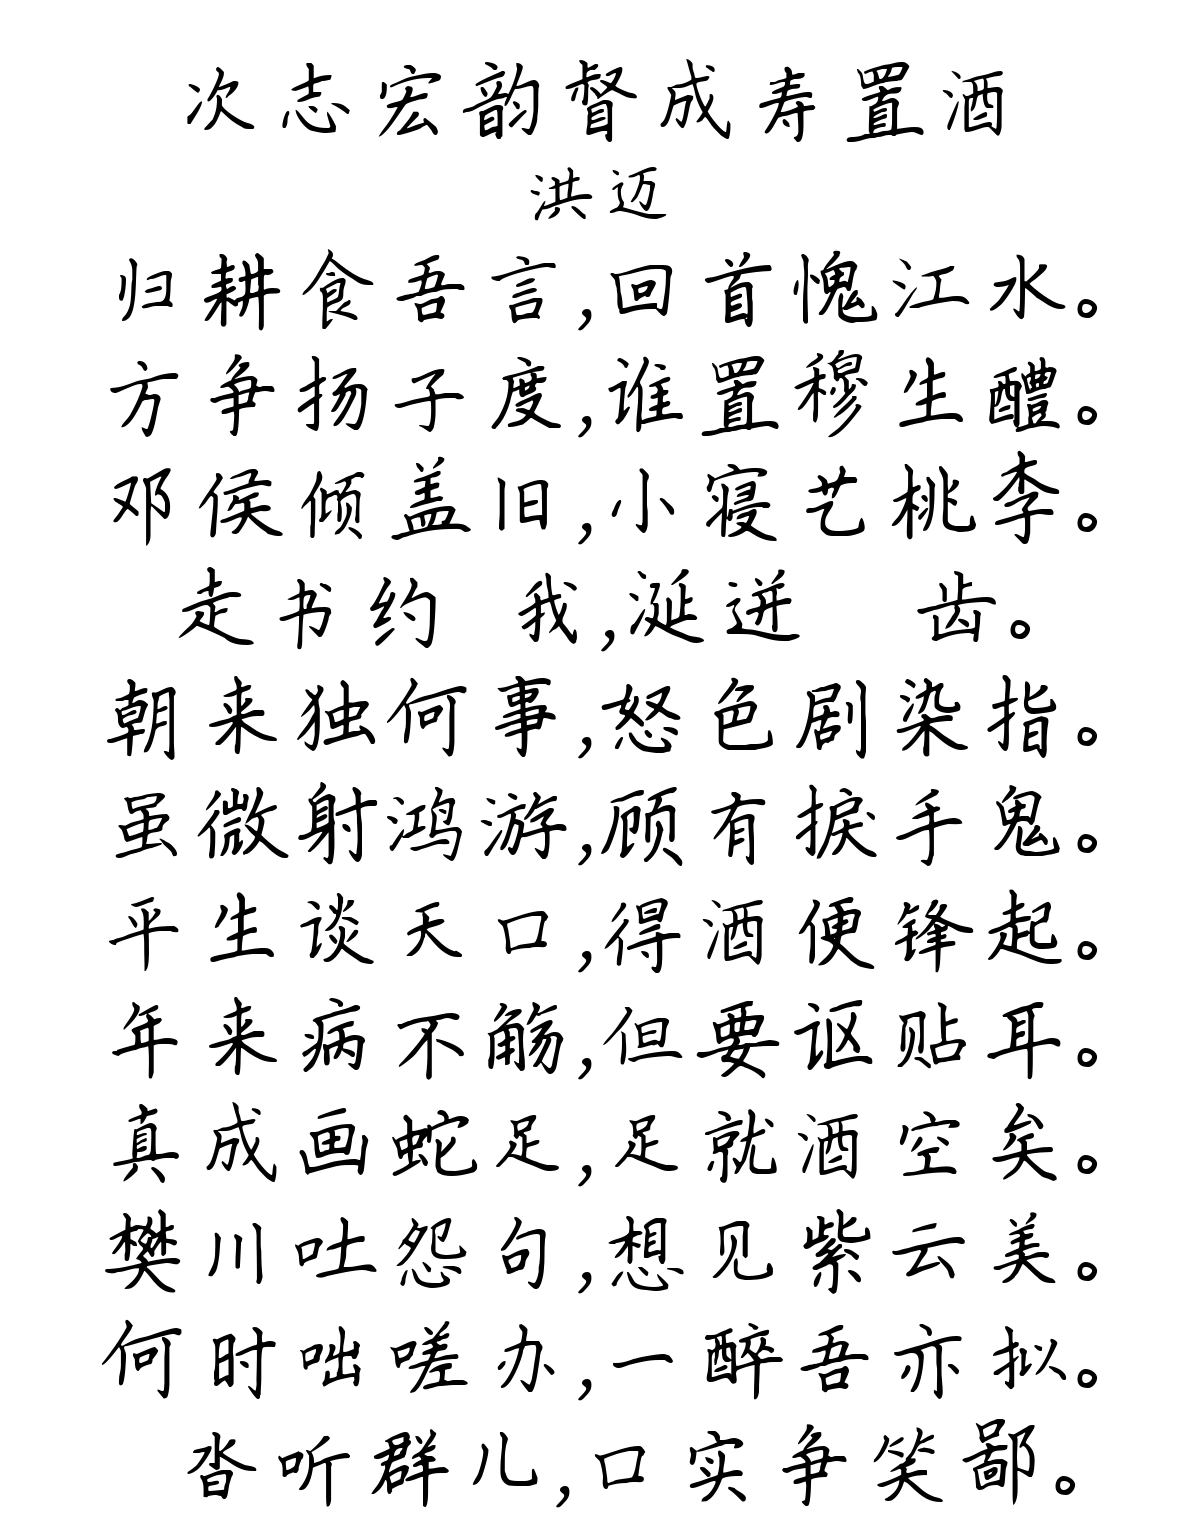 次志宏韵督成寿置酒
洪迈
归耕食吾言,回首愧江水。
方争扬子度,谁置穆生醴。
邓侯倾盖旧,小寝艺桃李。
走书约 我,涎迸 齿。
朝来独何事,怒色剧染指。
虽微射鸿游,顾有捩手鬼。
平生谈天口,得酒便锋起。
年来病不觞,但要讴贴耳。
真成画蛇足,足就酒空矣。
樊川吐怨句,想见紫云美。
何时咄嗟办,一醉吾亦拟。
沓听群儿,口实争笑鄙。